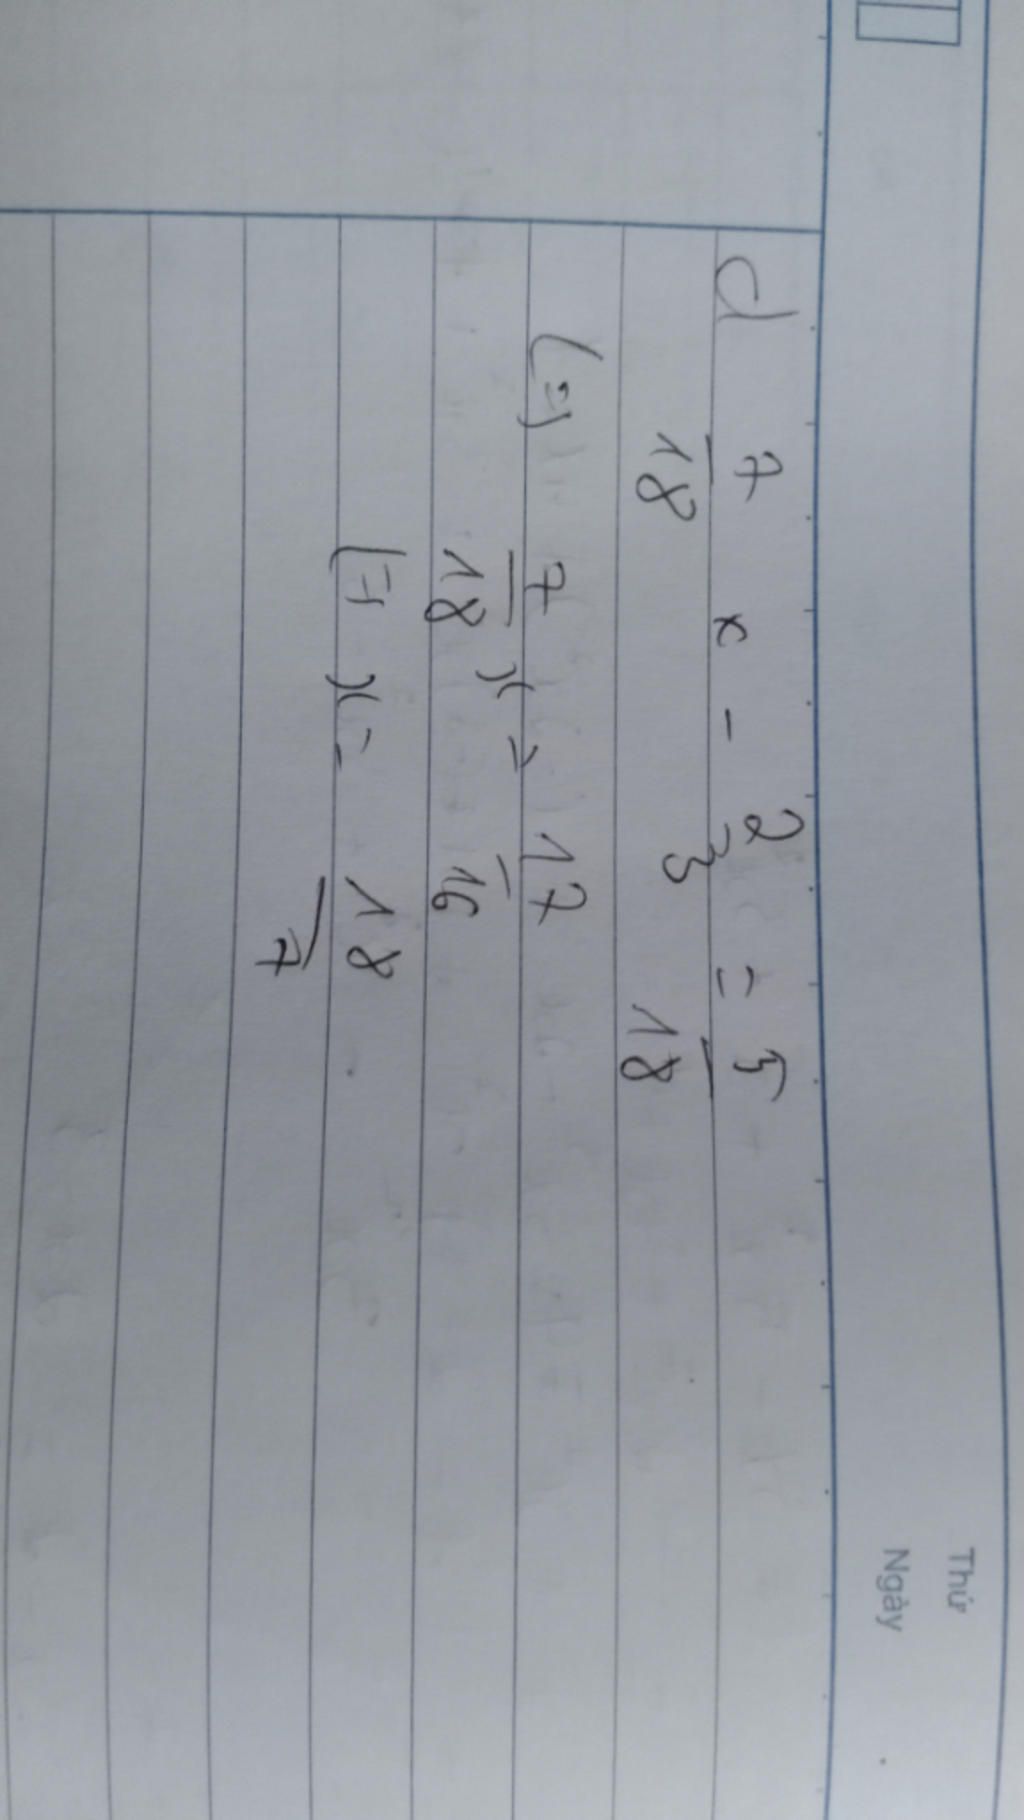 Thứ
Ngày
d) 7/18 x - 2/3 = 5/18
(=) 7/18 x = 17/16
(=) x = 18/7